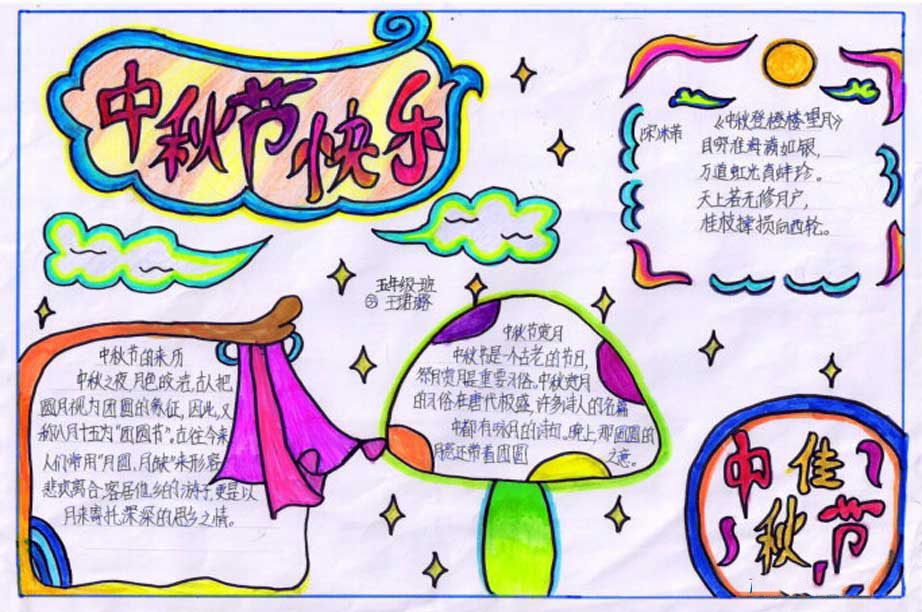 中秋节快乐
《中秋登橙楼望月》
宋 米芾
目穷淮海满如银,
万道虹光育蚌珍。
天上若无修月户,
桂枝撑损向西轮。
五年级一班
中秋节的来历
中秋之夜,月色皎洁,古人把
圆月视为团圆的象征,因此,又
称八月十五为"团圆节"。古往今来
人们常用"月圆,月缺"来形容
悲欢离合,客居他乡的游子,更是以
月来寄托深深的思乡之情。
中秋节赏月
中秋节是一个古老的节日,
祭月赏月是重要习俗。中秋赏月
的习俗在唐代极盛,许多诗人的名篇
中都有咏月的诗句。晚上那圆圆的
月亮还带着团圆之意。
中佳
秋节